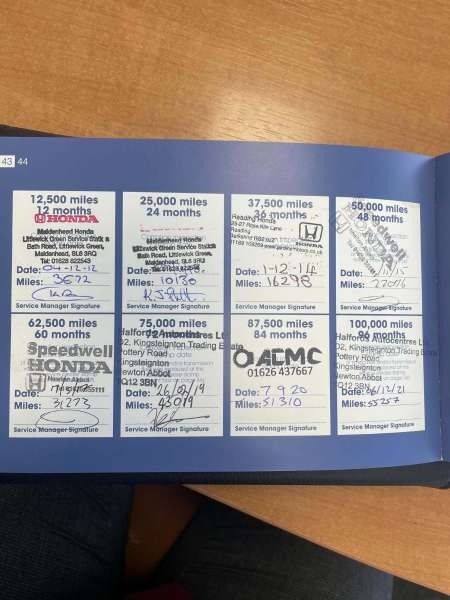 43 44
12,500 miles
12 months
HONDA
Maidenhead Honda
Littlewick Green Service Statik &
Bath Road, Littlewick Green,
Maidenhead, SL6 3RQ
Tel: 01628 822543
Date: 04-12-12
Miles: 3672
Service Manager Signature
25,000 miles
24 months
Maidenhead Honda
Littlewick Green Service Statik
Bath Road, Littlewick Green,
Maidenhead, SL6 3RQ
Date:
Miles: 10130
Service Manager Signature
37,500 miles
36 months
Reading Honda
Reading
HONDA
Date: 1-12-14
Miles: 16298
Service Manager Signature
50,000 miles
48 months
Speedwell
HONDA
Date:
Miles: 27076
Service Manager Signature
62,500 miles
60 months
Speedwell
HONDA
Newton Abbot
Date:
Miles: 31273
Service Manager Signature
75,000 miles
72 months
Halfords Autocentres Ltd
D2, Kingsteignton Trading Estate
Pottery Road
Kingsteignton
Newton Abbot
TQ12 3BN
Date: 26/02/19
Miles: 43019
Service Manager Signature
87,500 miles
84 months
ACMC
01626 437667
Date: 7 9 20
Miles: 51310
Service Manager Signature
100,000 miles
96 months
Halfords Autocentres Ltd
D2, Kingsteignton Trading Estate
Pottery Road
Kingsteignton
Newton Abbot
TQ12 3BN
Date: 6/12/21
Miles: 55257
Service Manager Signature